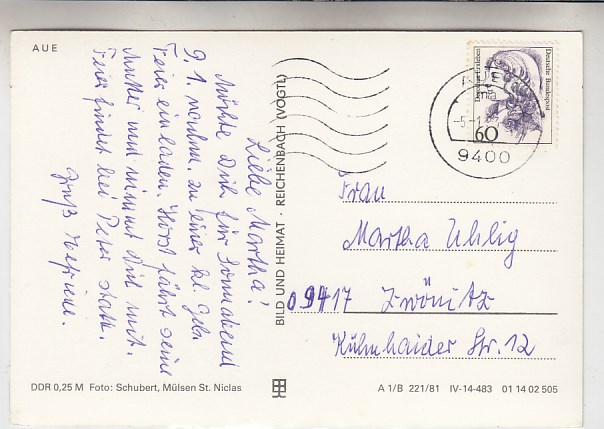 AUE
Liebe Martha!
Möchte Dich für Sonnabend
9. 1. nachm. zu einer kl. Geb.
Feier einladen. Horst fährt seine
Mutter und nimmt Dich mit.
Feier findet bei Peter statt.
Gruß
BILD UND HEIMAT · REICHENBACH (VOGTL)
Deutsche Bundespost
60
AUE
9400
Frau
Martha Uhlig
09417 Zwönitz
Kühnhaider Str. 12
DDR 0,25 M Foto: Schubert, Mülsen St. Niclas
A 1/B 221/81 IV-14-483 01 14 02 505